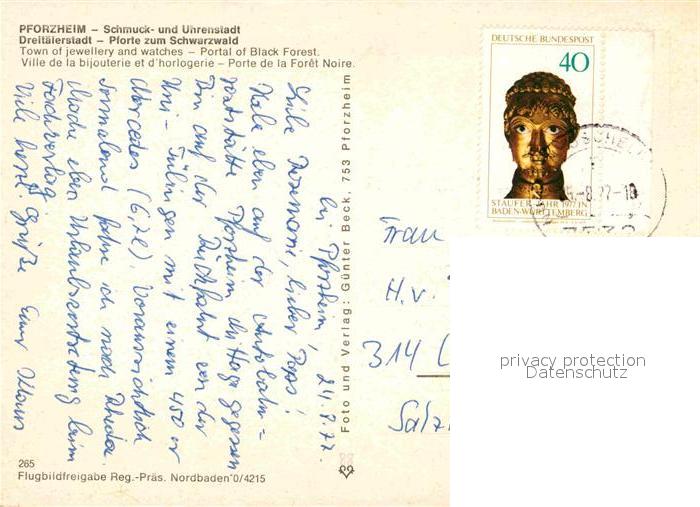 PFORZHEIM – Schmuck- und Uhrenstadt
Dreitälerstadt – Pforte zum Schwarzwald
Town of jewellery and watches – Portal of Black Forest.
Ville de la bijouterie et d'horlogerie – Porte de la Forêt Noire.
Bei Pforzheim, 24.8.77.
Liebe Rosemarie, lieber Paps!
Habe eben auf der Autobahn=
raststätte Pforzheim zu Mittag gegessen
Bin auf der Rückfahrt von der
Uni-Tübingen mit einem 450 er
Mercedes (6,9l). Voraussichtlich
Sonnabend fahre ich nach
Mache eben Urlaubsvertretung beim
Fachverlag.
Viele herzl. Grüße Euer Klaus
Foto und Verlag: Günter Beck, 753 Pforzheim
265
Flugbildfreigabe Reg.-Präs. Nordbaden 0/4215
DEUTSCHE BUNDESPOST
40
STAUFER-JAHR 1977 IN
BADEN-WÜRTTEMBERG
-8.77-18
Frau
H.v.
314
Salz
privacy protection
Datenschutz